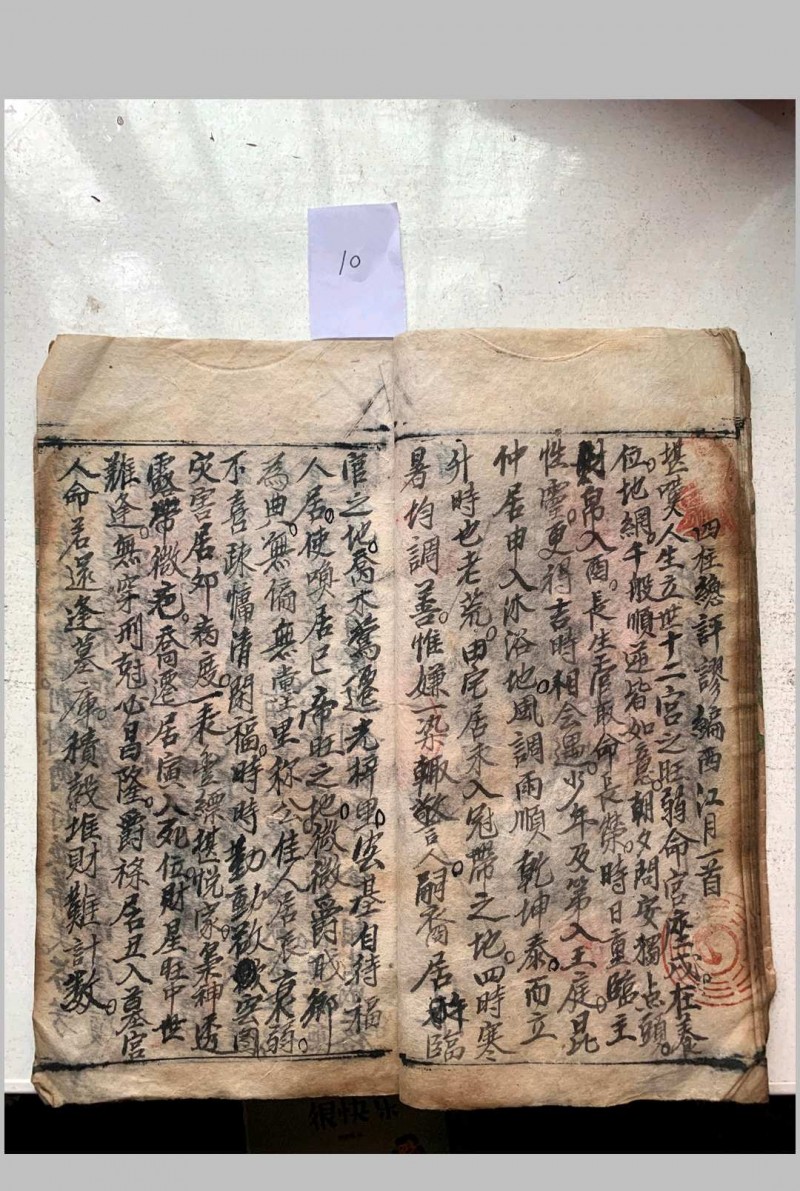 10
四柱總評謬編西江月一首
堪嘆人生立世十二宮之旺弱命宮座戌柱養
位地網千般順逆皆如意朝夕問安獨点頭
財帛入酉長生官取命長榮時日重臨主
性靈更得吉時相會遇少年及第入王庭昆
仲居申入沐浴地風調雨順乾坤泰而立
升時也老荒田宅居未入冠帶之地四時寒
暑均調善惟嫌一染輙驚人嗣裔居臨
官之地喬木鶯遷光耀里宏基自待福
人居使喚居巳帝旺之地微微爵戝御
為典無偏無堂里称公佳人居辰衰弱
不喜疎慵清閑福時時勤動欲歎空圖
灾害居卯病度一表堂縹堪悦家梟神透
露帶微疤喬遷居寅入死位財星旺中世
難逢無穿刑尅必昌隆爵祿居丑入墓宮
人命若還逢墓庫積穀堆財難計數
很快樂